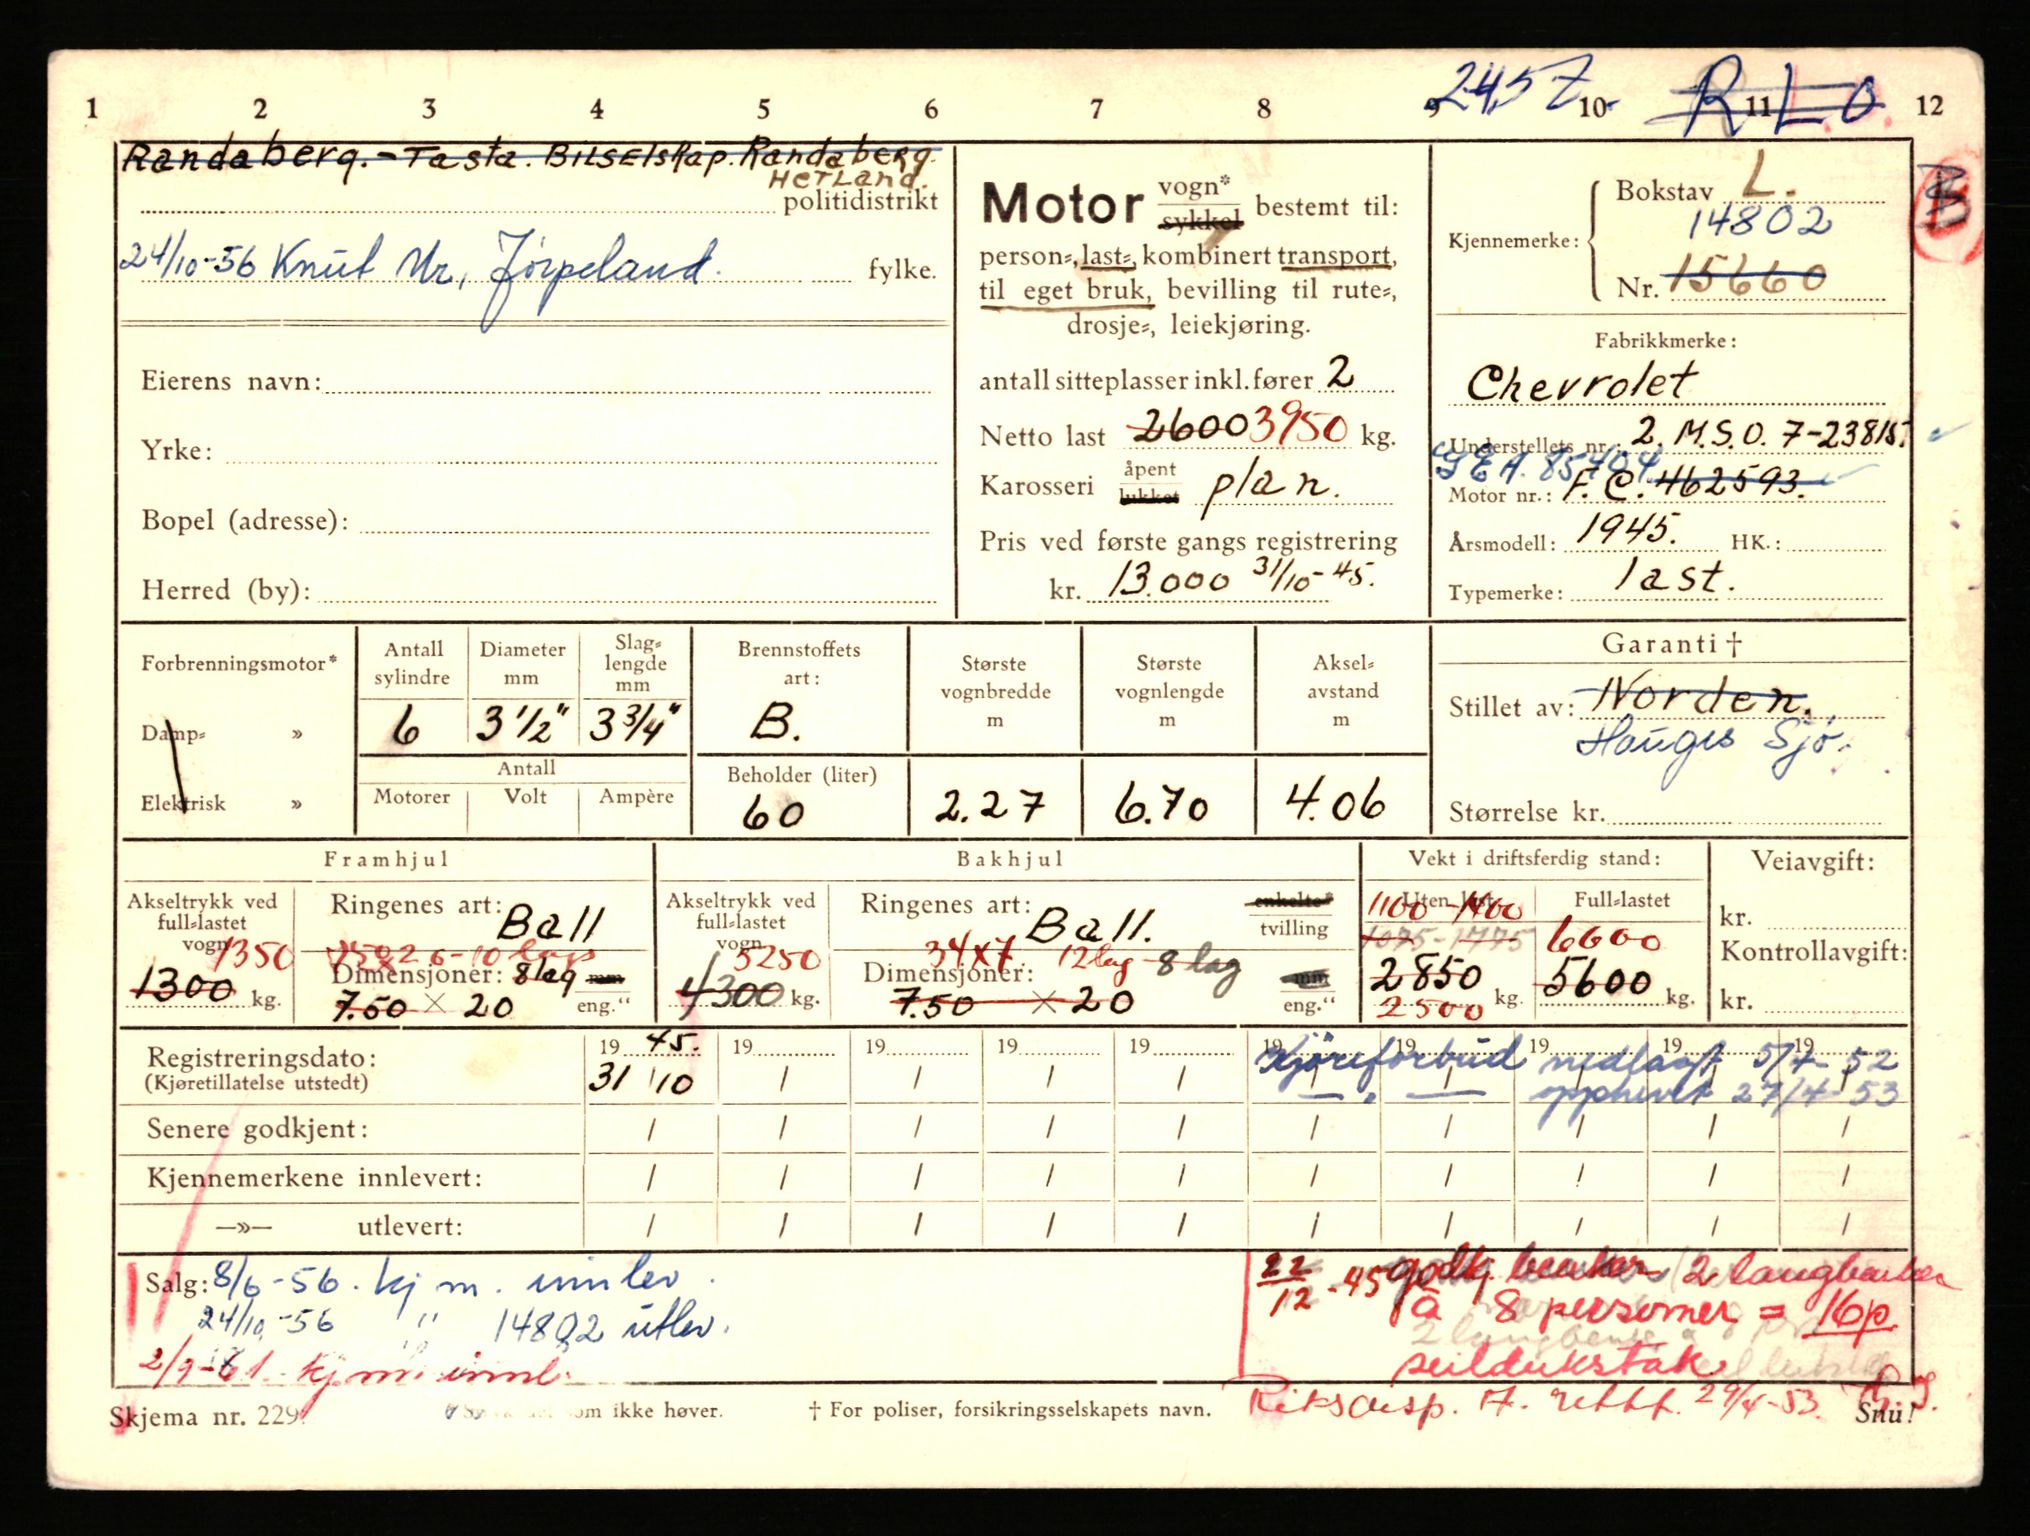 1 2 3 4 5 6 7 8 9 10 11 12
2457. R L.O.
Randaberg.-Tasta. Bilselskap. Randaberg.
Hetland.
politidistrikt
24/10-56 Knut Jørpeland. fylke.
Eierens navn:
Yrke:
Bopel (adresse):
Herred (by):
Motor vogn* sykkel bestemt til:
person-, last-, kombinert transport,
til eget bruk, bevilling til rute-,
drosje-, leiekjøring.
antall sitteplasser inkl. fører 2
Netto last 2600 3950 kg.
Karosseri åpent lukket plan.
Pris ved første gangs registrering
kr. 13.000 31/10-45.
Kjennemerke:
Bokstav L.
14802
Nr. 15660
Fabrikkmerke:
Chevrolet
Understellets nr.: 2. M.S.O. 7-23815.
G E A. 85404
Motor nr.: F. C. 462593.
Årsmodell: 1945. HK.:
Typemerke: last.
Forbrenningsmotor*
Damp- »
Elektrisk »
Antall sylindre
6
Diameter mm
3 1/2"
Slag-
lengde
mm
3 3/4"
Antall
Motorer Volt Ampère
Brennstoffets
art:
B.
Beholder (liter)
60
Største
vognbredde
m
2.27
Største
vognlengde
m
6.70
Aksel-
avstand
m
4.06
Garanti †
Stillet av: Norden.
Hauges Sjø.
Størrelse kr.
Framhjul
Akseltrykk ved
full-lastet
vogn 1350
1300 kg.
Ringenes art: Ball
Dimensjoner: 8 lag mm
7.50 × 20 eng."
Bakhjul
Akseltrykk ved
full-lastet
vogn 5250
4300 kg.
Ringenes art: Ball. enkelte*
tvilling
34×7 12 lag 8 lag
Dimensjoner: mm
7.50 × 20 eng."
Vekt i driftsferdig stand:
Uten last Full-lastet
1100-1400
1075-1775 6600
2850 5600
2500 kg. kg.
Veiavgift:
kr.
Kontrollavgift:
kr.
Registreringsdato: 19 45. 19 19 19 19 19 19 19 19 19
(Kjøretillatelse utstedt) 31/10 / / / /
Kjøreforbud nedlagt 5/4-52
— " — opphevet 27/4-53
Senere godkjent: / / / / / / / / / /
Kjennemerkene innlevert: / / / / / / / / / /
—»— utlevert: / / / / / / / / / /
Salg: 8/6-56. kj m. innlev.
24/10-56 " 14802 utlev.
2/9-61. kj m. innl.
22/12-45 godkj. benker 2 langbenker
à 8 personer = 16p.
seildukstak
Skjema nr. 229.
som ikke høver.
† For poliser, forsikringsselskapets navn.
29/4-53.
Snu!